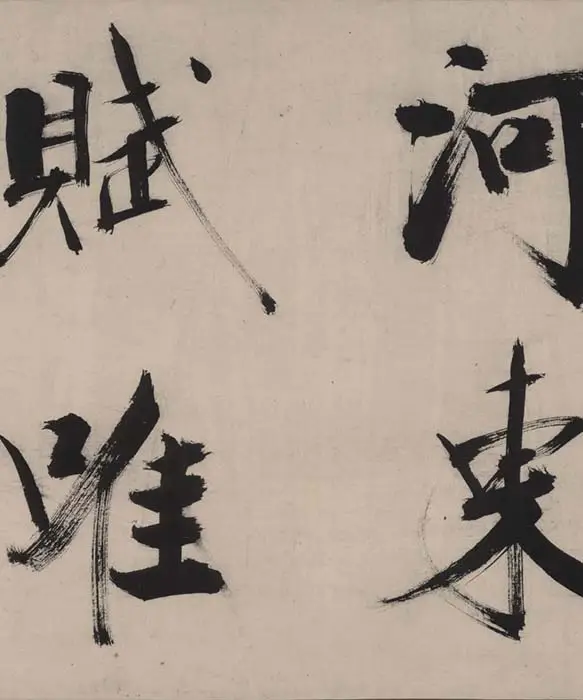 河東
賦唯